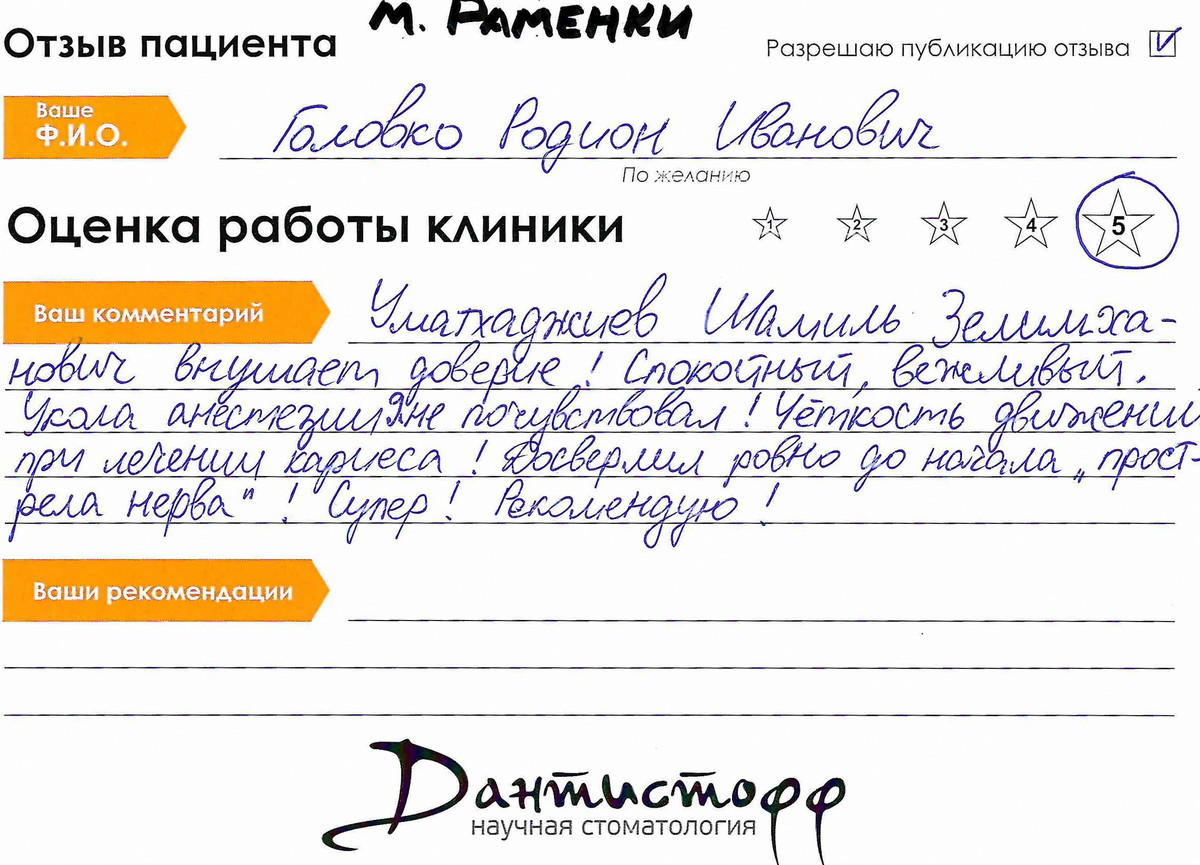 м. Раменки
Отзыв пациента
Разрешаю публикацию отзыва
Ваше
Ф.И.О.
Головко Родион Иванович
По желанию
Оценка работы клиники
1 2 3 4 5
Ваш комментарий
Уматхаджиев Шамиль Зелимха-
нович внушает доверие! Спокойный, вежливый.
Укола анестезии я не почувствовал! Чёткость движений
при лечении кариеса! Досверлил ровно до начала „прост-
рела нерва“! Супер! Рекомендую!
Ваши рекомендации
Дантистофф
научная стоматология